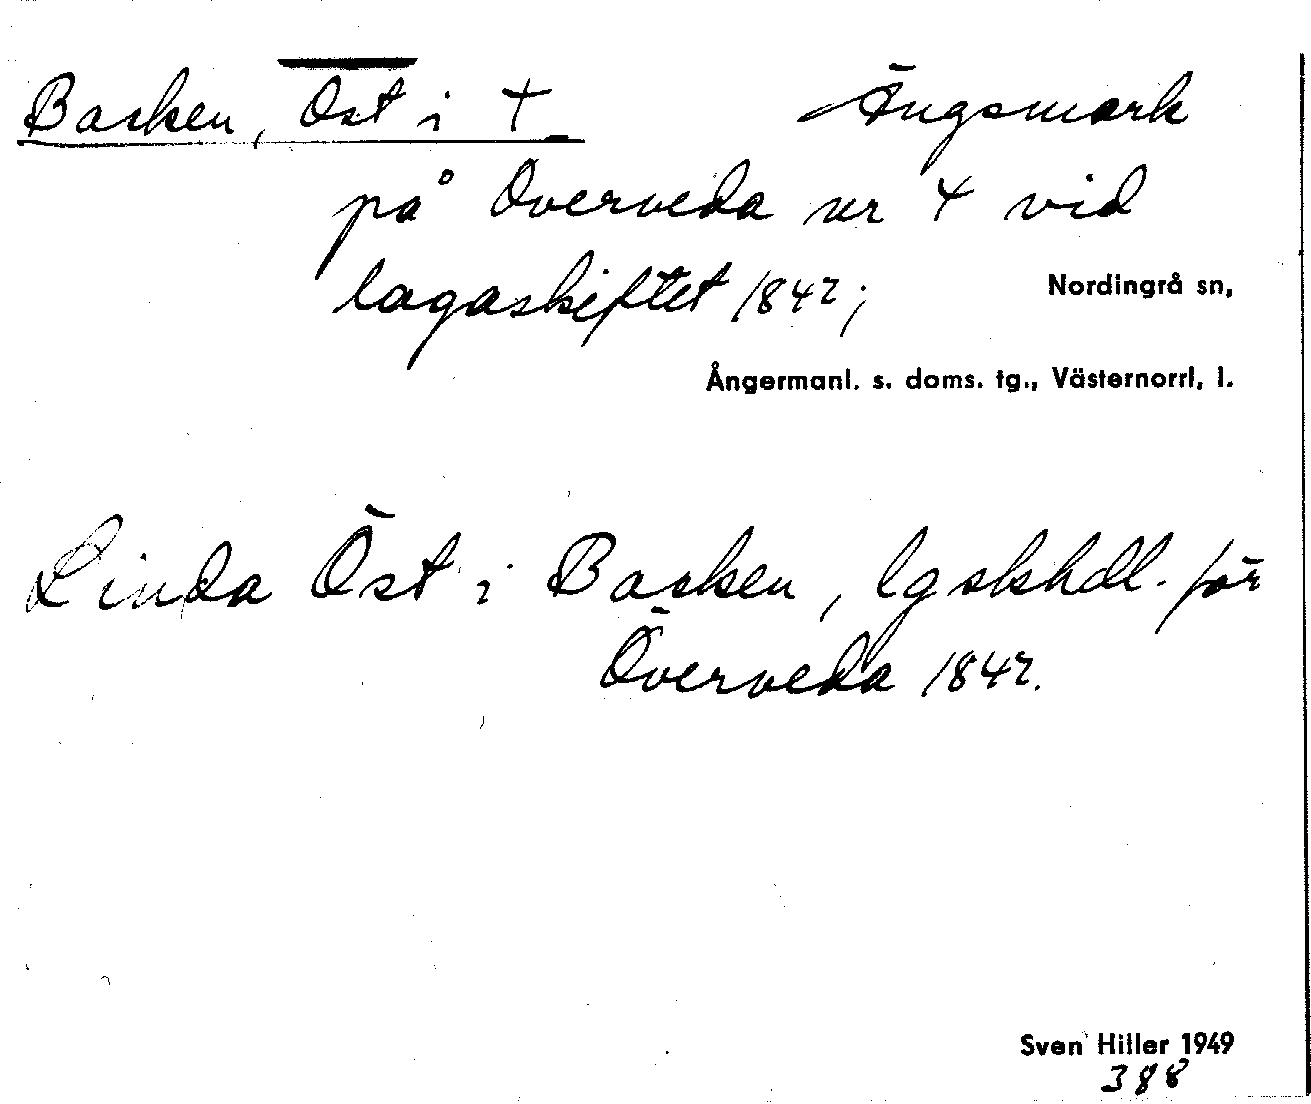 Backen, Öst i †_ Ängsmark
på Överveda nr 4 vid
lagaskiftet 1842;
Nordingrå sn,
Ångermanl. s. doms. tg., Västernorrl, l.
Linda Öst i Backen, lgskhdl. för
Överveda 1842.
Sven Hiller 1949
388